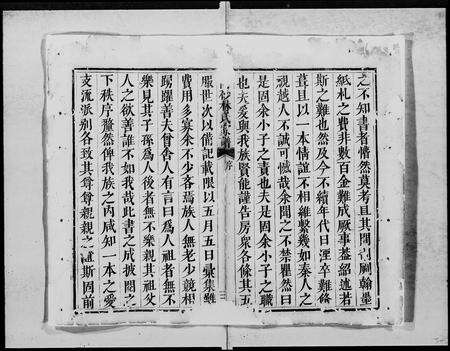 之不知書者懵然莫考且其間剞劂翰墨
紙札之費非數百金難成厥事蓋紹述若
斯之難也然及今不續年代日湮卒難脩
葺且以一本情誼不相維繫幾如秦人之
視越人不誠可慨哉余聞之不禁瞿然曰
是固余小子之責也夫是固余小子之職
也夫爰與我族賢能謹告房衆各條其五
林氏
序
服世次以備記載限以五月五日彙集雖
費用多寡未不少吝焉族人無老少競相
踴躍善夫曾舍人有言曰爲人祖者無不
樂見其子孫爲人後者無不樂親其祖父
人之欲善誰不如我哉此書之成披閱之
下秩序釐然俾我族之內咸知一本之愛
支流派別各致其尊尊親親之誼斯固前